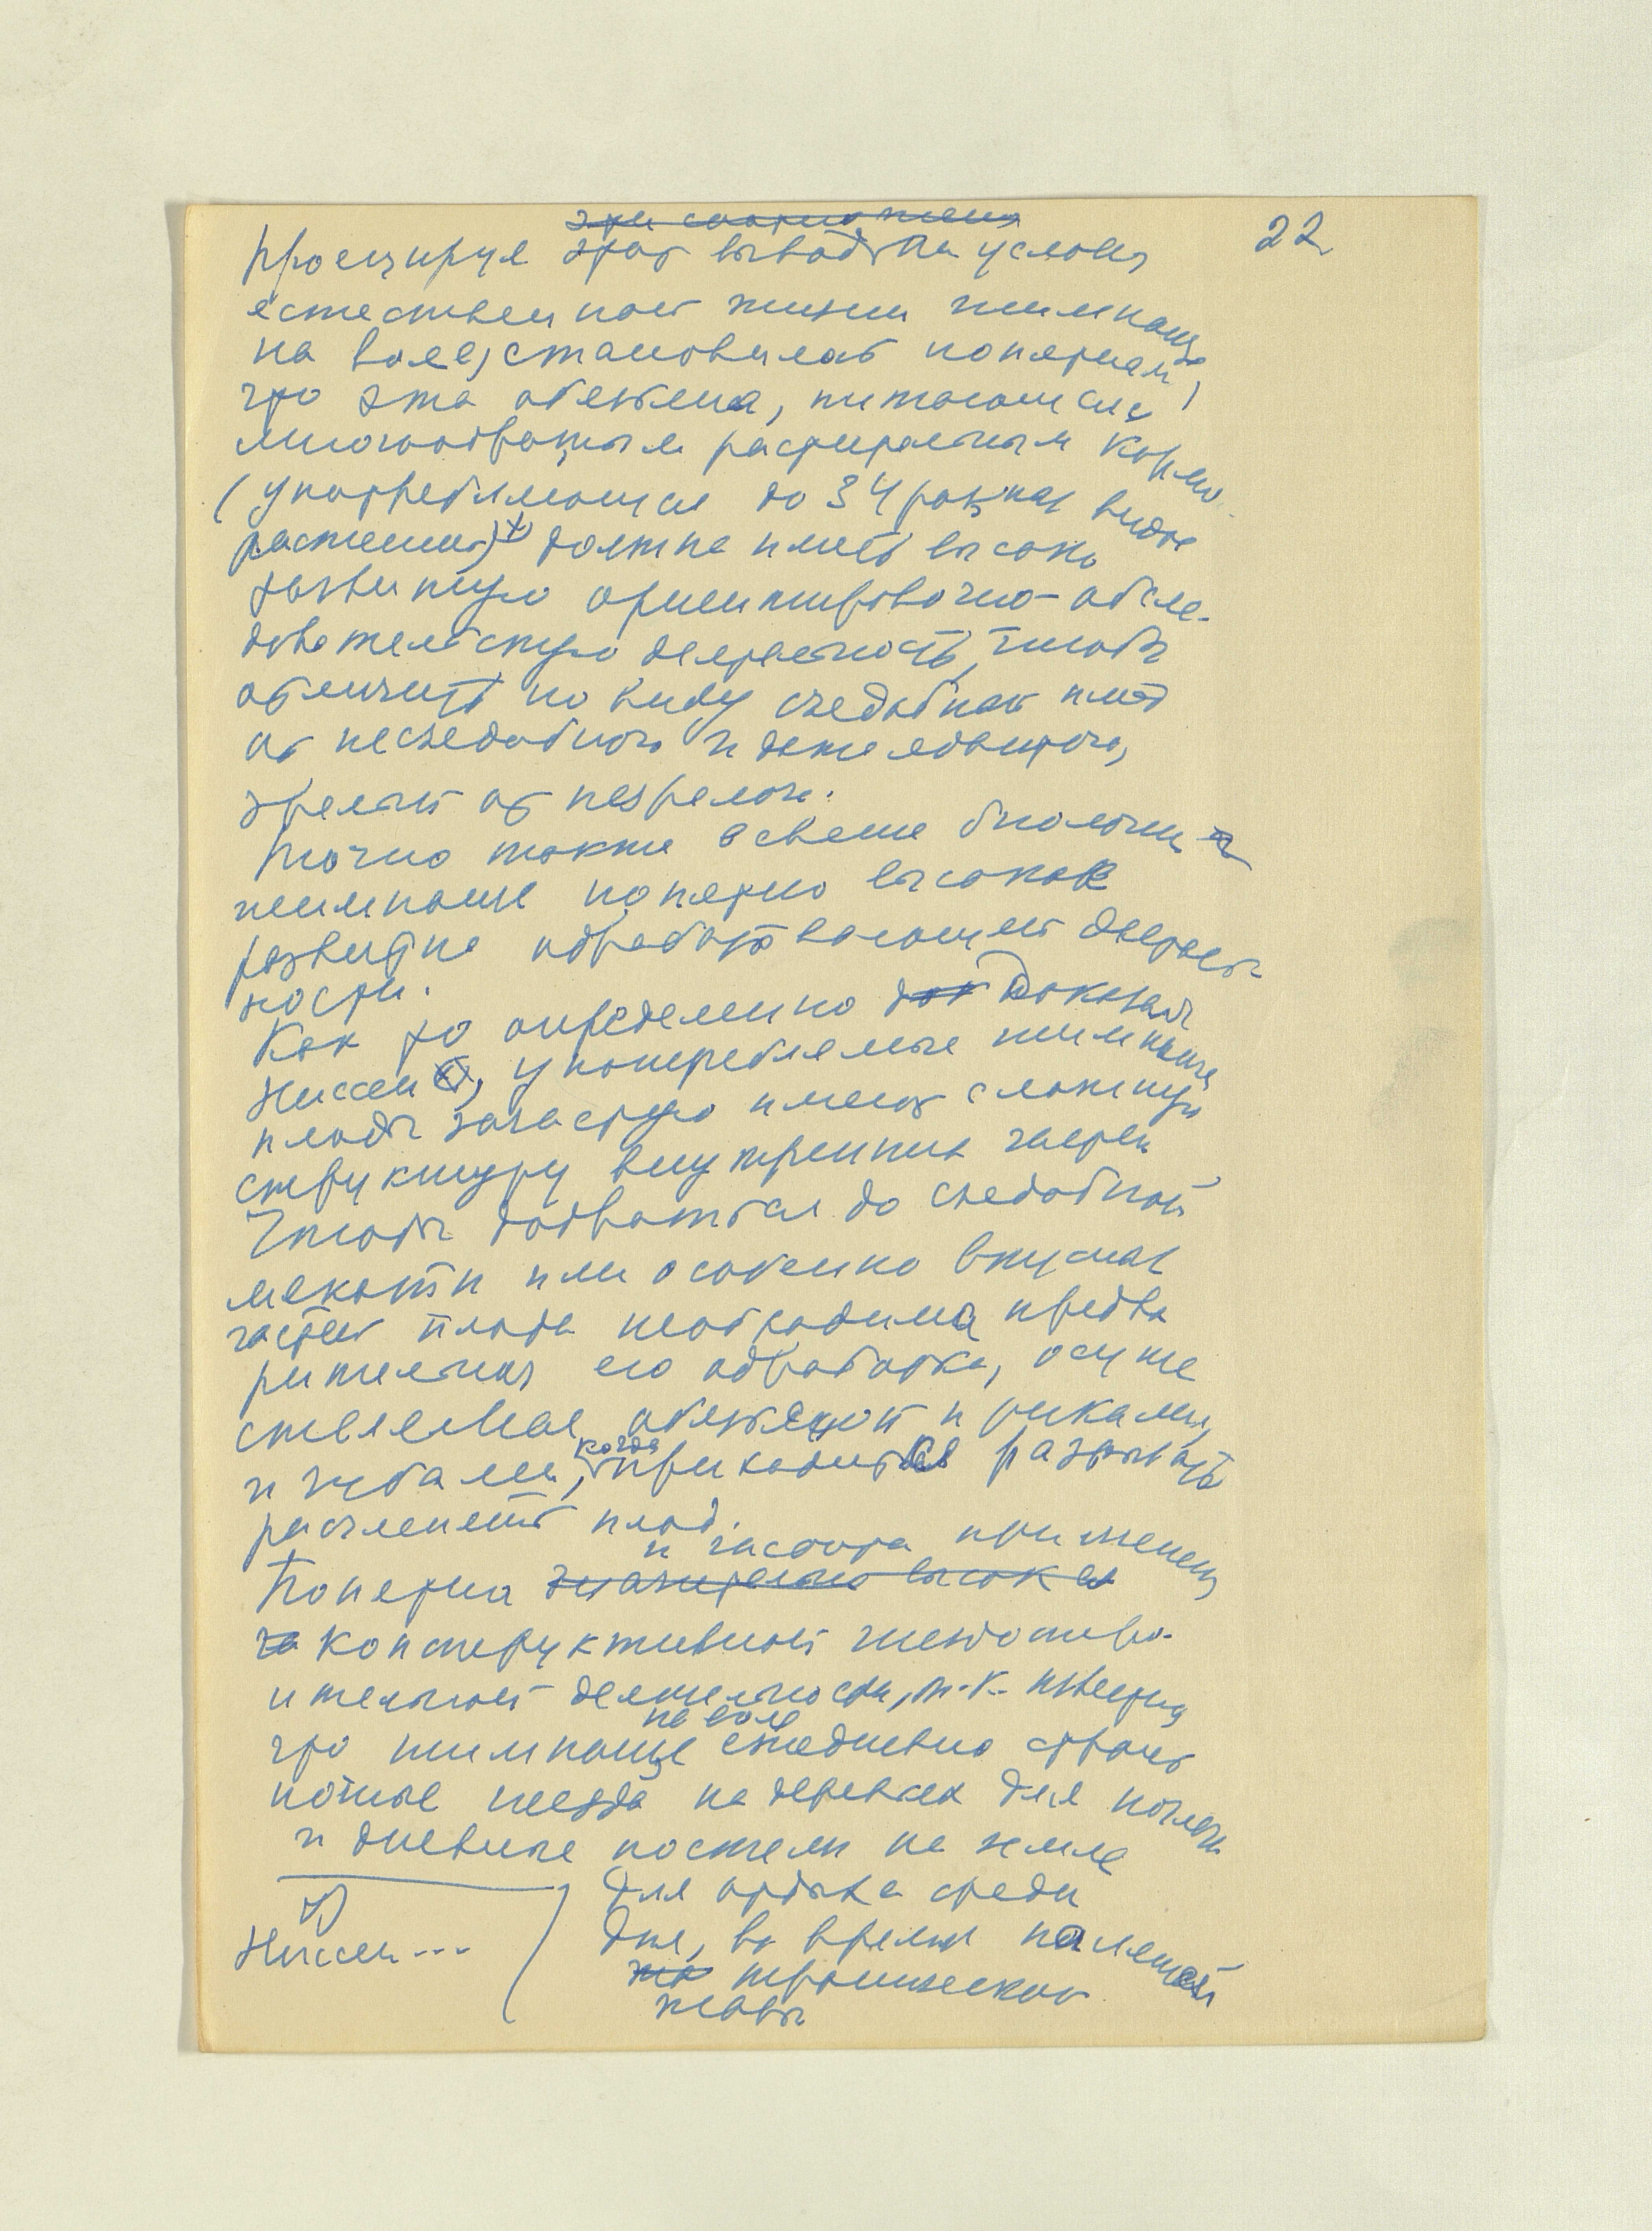 22
эти соотношения
Проецируя этот вывод на условия
естественной жизни шимпанзе
на воле, становилось понятным,
что эта обезьяна, питающаяся
многообразным растительным кормом
(употребляющая до 34 разных видов
растений)¹⁾ должна иметь высоко
развитую ориентировочно-обсле-
довательскую деятельность, чтобы
отличить по виду съедобный плод
от несъедобного и даже ядовитого,
зрелый от незрелого.
Точно также в свете биологии
шимпанзе понятно высокое
развитие обрабатывающей деятель-
ности.
Как то определенно док доказал
Ниссен, употребляемые шимпанзе
плоды зачастую имеют сложную
структуру внутренних частей
Чтобы добраться до съедобной
мякоти или особенно вкусных
частей плода необходима предва
рительная его обработка, осуще
ствляемая обезьяной и руками,
и зубами, когда приходится разрывать
расчленять плод.
и частота применения
Понятна значительно высокая
конструктивной гнездостро-
ительной деятельности, т.к. известно
на воле
что шимпанзе ежедневно строят
ночные гнезда на деревьях для ночлега
и дневные постели на земле
для отдыха среди
дня, во время палящей
тропической
жары
1)
Ниссен...